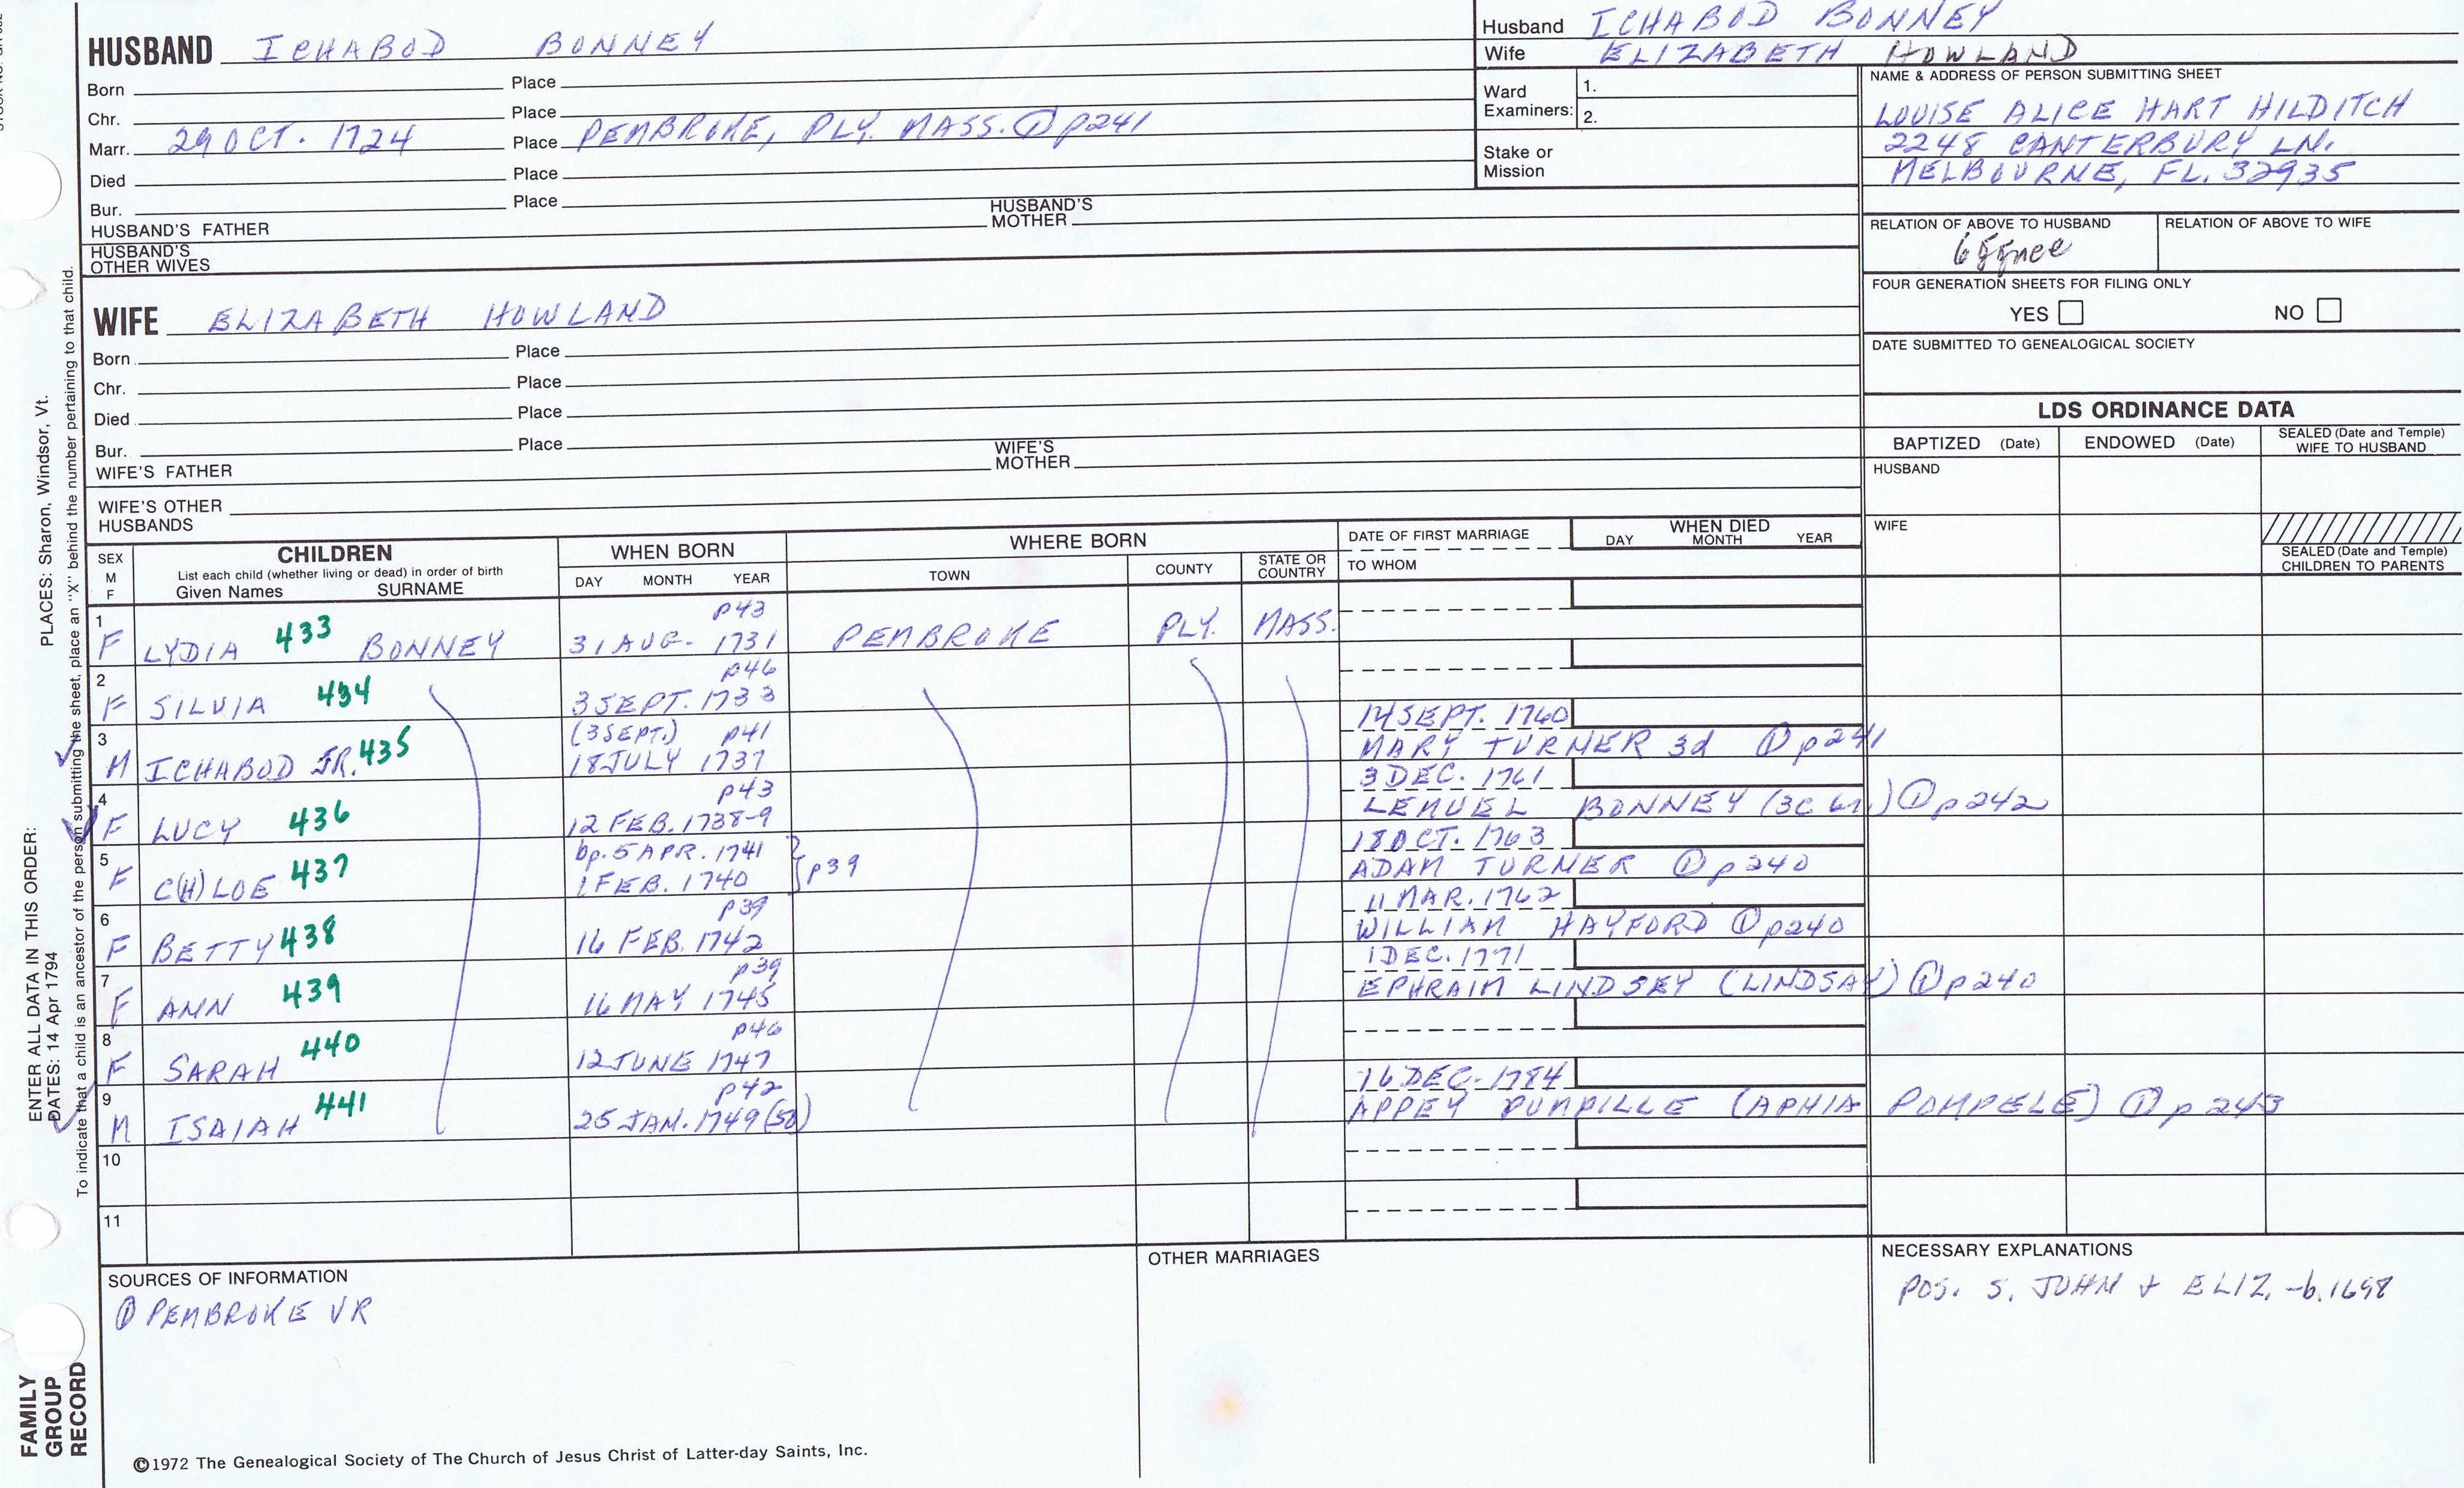 HUSBAND ICHABOD BONNEY
Born Place
Chr. Place
Marr. 29 OCT. 1724 Place PEMBROKE, PLY. MASS. ① p241
Died Place
Bur. Place
HUSBAND'S FATHER HUSBAND'S MOTHER
HUSBAND'S OTHER WIVES
Husband ICHABOD BONNEY
Wife ELIZABETH HOWLAND
Ward Examiners: 1.
2.
Stake or Mission
NAME & ADDRESS OF PERSON SUBMITTING SHEET
LOUISE ALICE HART HILDITCH
2248 CANTERBURY LN.
MELBOURNE, FL. 32935
RELATION OF ABOVE TO HUSBAND RELATION OF ABOVE TO WIFE
FOUR GENERATION SHEETS FOR FILING ONLY
YES NO
DATE SUBMITTED TO GENEALOGICAL SOCIETY
WIFE ELIZABETH HOWLAND
Born Place
Chr. Place
Died Place
Bur. Place
WIFE'S FATHER WIFE'S MOTHER
WIFE'S OTHER HUSBANDS
LDS ORDINANCE DATA
BAPTIZED (Date) ENDOWED (Date) SEALED (Date and Temple) WIFE TO HUSBAND
HUSBAND
WIFE
SEALED (Date and Temple) CHILDREN TO PARENTS
SEX M F
CHILDREN
List each child (whether living or dead) in order of birth
Given Names SURNAME
WHEN BORN
DAY MONTH YEAR
WHERE BORN
TOWN COUNTY STATE OR COUNTRY
DATE OF FIRST MARRIAGE
TO WHOM
WHEN DIED
DAY MONTH YEAR
p43
1 F LYDIA 433 BONNEY 31 AUG. 1731 PEMBROKE PLY. MASS.
p46
2 F SILVIA 434 3 SEPT. 1733
(3 SEPT.) p41 14 SEPT. 1760
3 M ICHABOD JR. 435 18 JULY 1737 MARY TURNER 3d ① p241
p43 3 DEC. 1761
4 F LUCY 436 12 FEB. 1738-9 LEMUEL BONNEY ① p242
bp. 5 APR. 1741 18 OCT. 1763
5 F C(H)LOE 437 1 FEB. 1740 p39 ADAM TURNER ① p240
p39 11 MAR. 1762
6 F BETTY 438 16 FEB. 1742 WILLIAM HAYFORD ① p240
p39 1 DEC. 1771
7 F ANN 439 16 MAY 1745 EPHRAIM LINDSEY (LINDSAY) ① p240
p46
8 F SARAH 440 12 JUNE 1747
p42 16 DEC. 1784
9 M ISAIAH 441 25 JAN. 1749(50) APPEY PUMPILLE (APHIA POMPELE) ① p243
10
11
SOURCES OF INFORMATION
① PEMBROKE VR
OTHER MARRIAGES
NECESSARY EXPLANATIONS
POS. S. JOHN + ELIZ. -b.1698
©1972 The Genealogical Society of The Church of Jesus Christ of Latter-day Saints, Inc.
FAMILY GROUP RECORD
ENTER ALL DATA IN THIS ORDER:
DATES: 14 Apr 1794
PLACES: Sharon, Windsor, Vt.
To indicate that a child is an ancestor of the person submitting the sheet, place an "X" behind the number pertaining to that child.